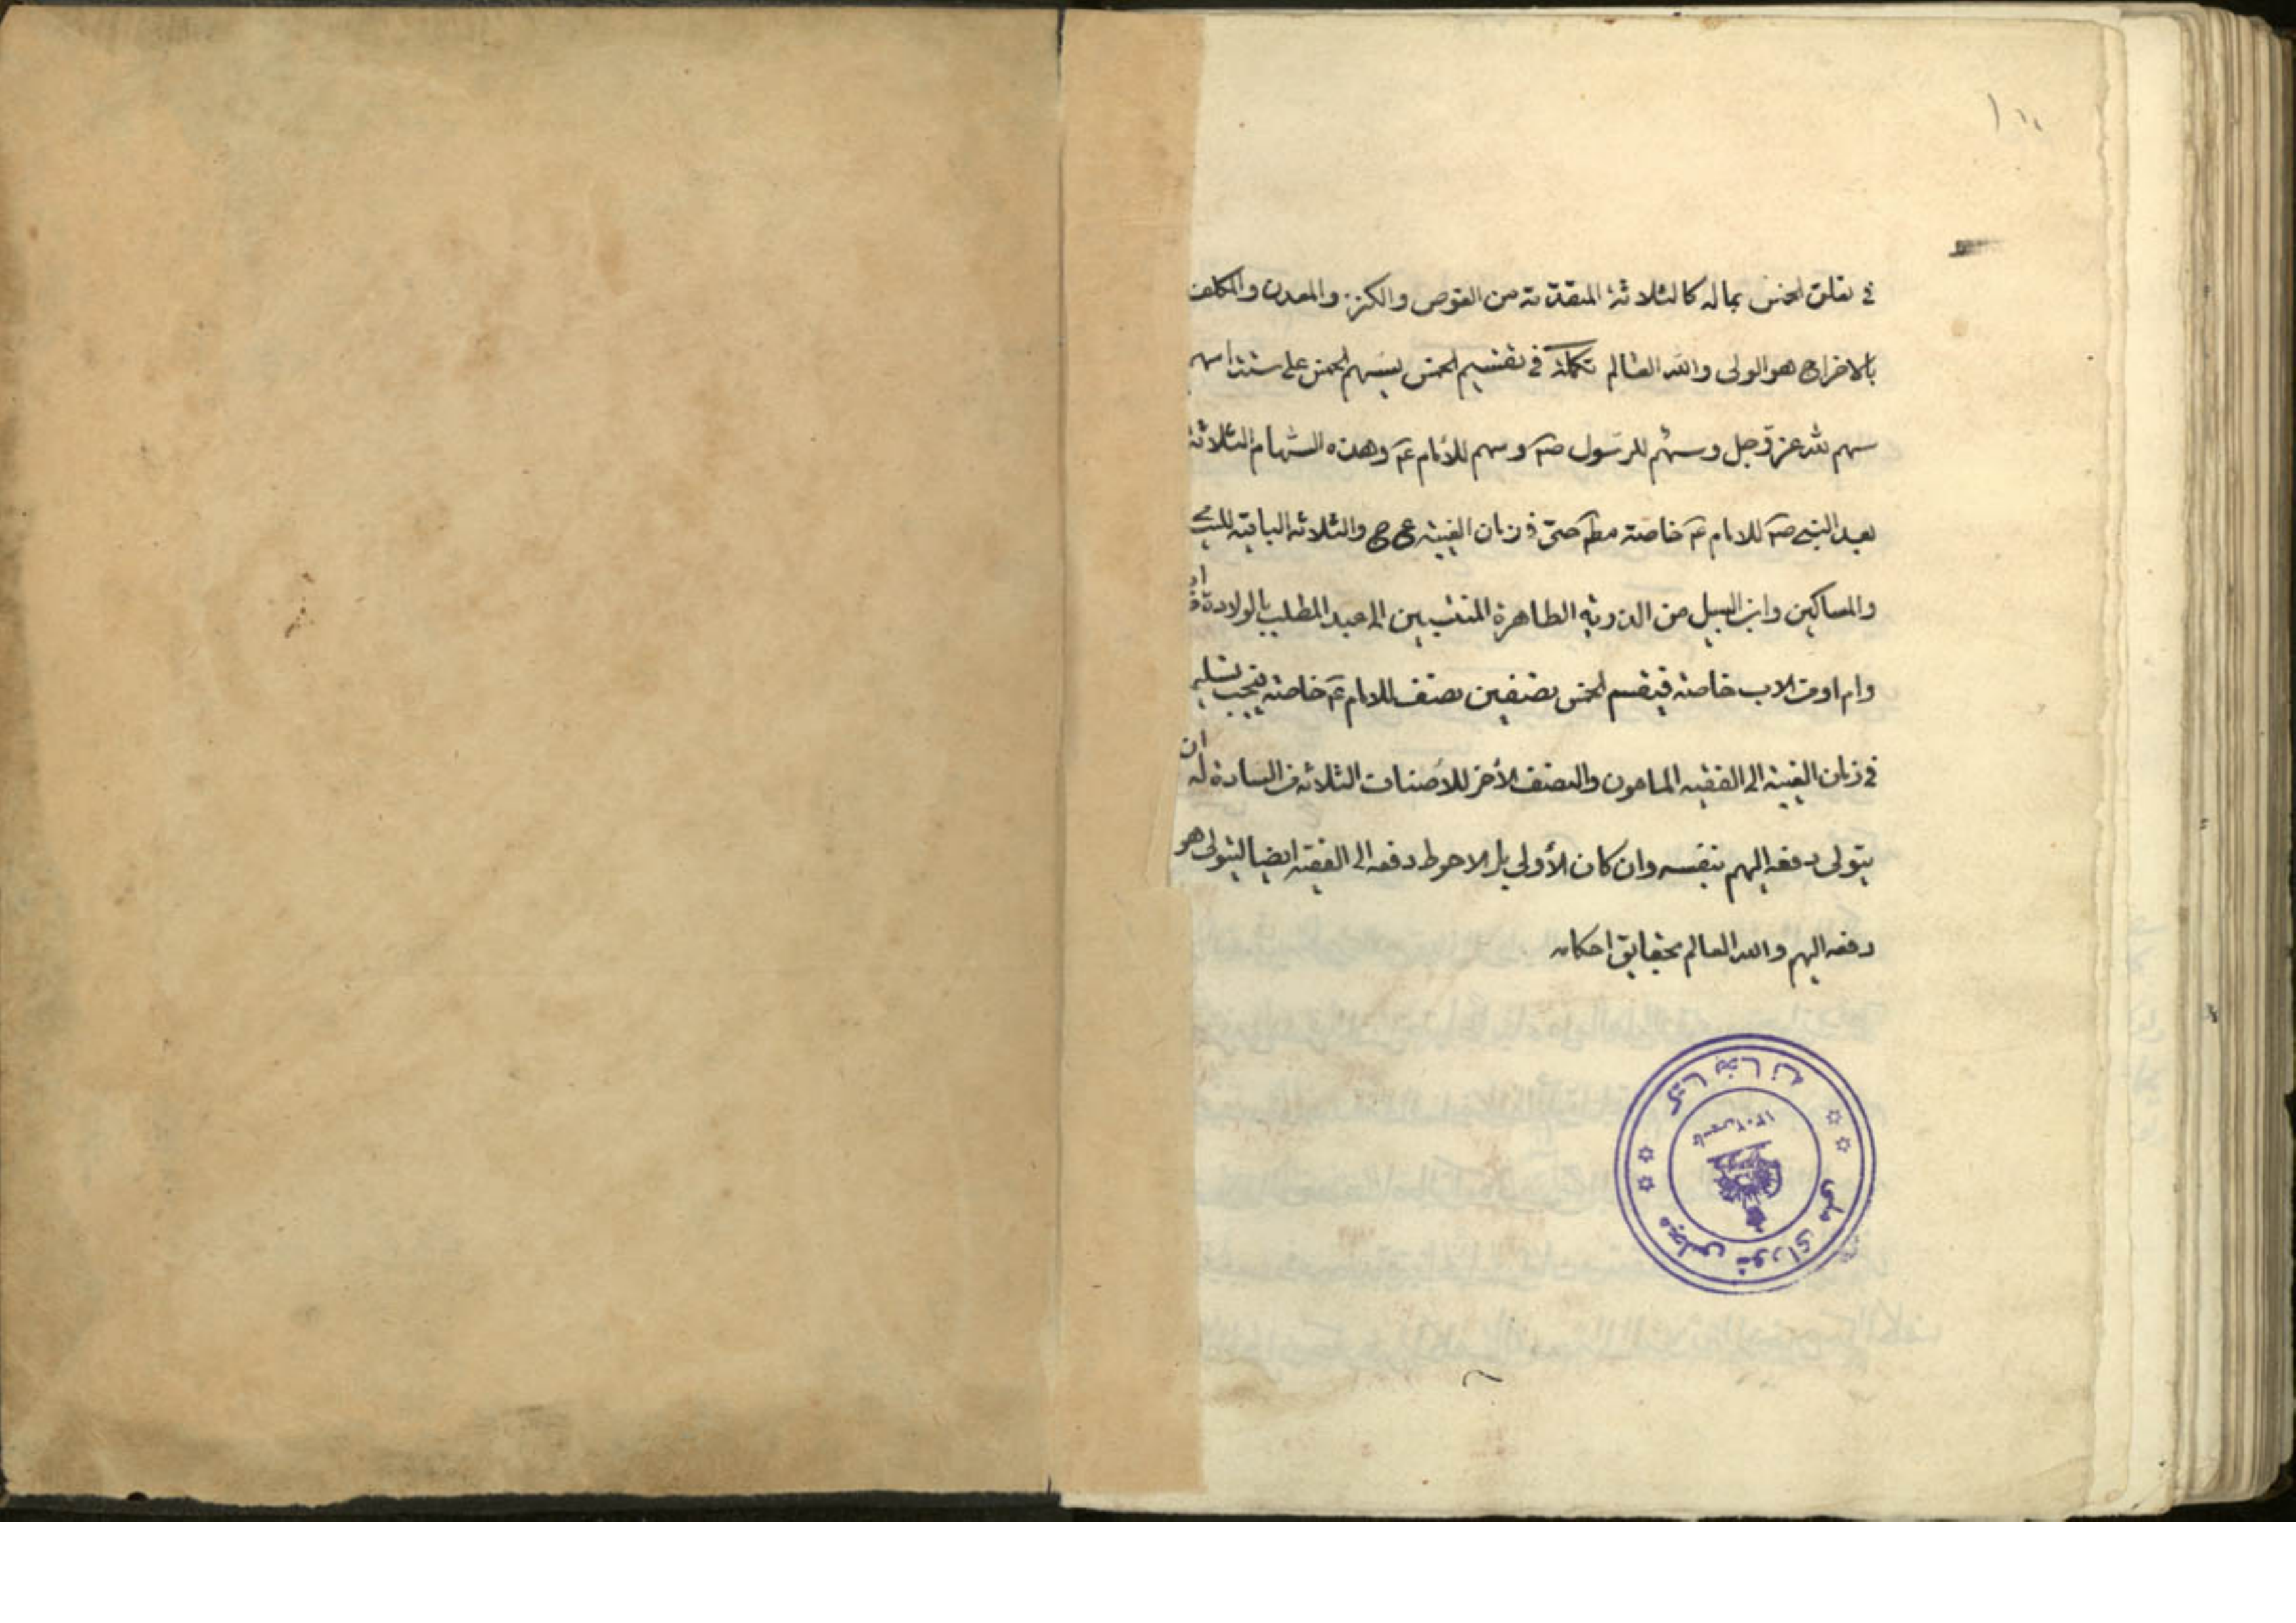 في تعلق الخمس بماله كالثلاثة المتقدمة من الغوص والكنز والمعدن والمكلف
بالاخراج هو الولى والله العالم تكملة في تقسيم الخمس يسهم الخمس على ستة اسهم
سهم لله عز وجل وسهم للرسول صم وسهم للأمام عم وهذه السهام الثلاثة
بعد النبي صم للامام عم خاصة مطم حتى في زمان الغيبة عج والثلاثة الباقية لليتامى
والمساكين وابن السبيل من الذرية الطاهرة المنتسبين الى عبد المطلب بالولادة
وام او من الاب خاصة فيقسم الخمس نصفين نصف للامام عم خاصة فيجب تسليمه
في زمان الغيبة الى الفقيه المامون والنصف الأخر للأصناف الثلاثة من السادة له ان
يتولى دفعه اليهم بنفسه وان كان الأولى بل الاحوط دفعه الى الفقيه ايضا ليتولى هو
دفعه اليهم والله العالم بحقايق احكامه
کتابخانه
مجلس شورای ملی
تاسیس ۱۳۰۲